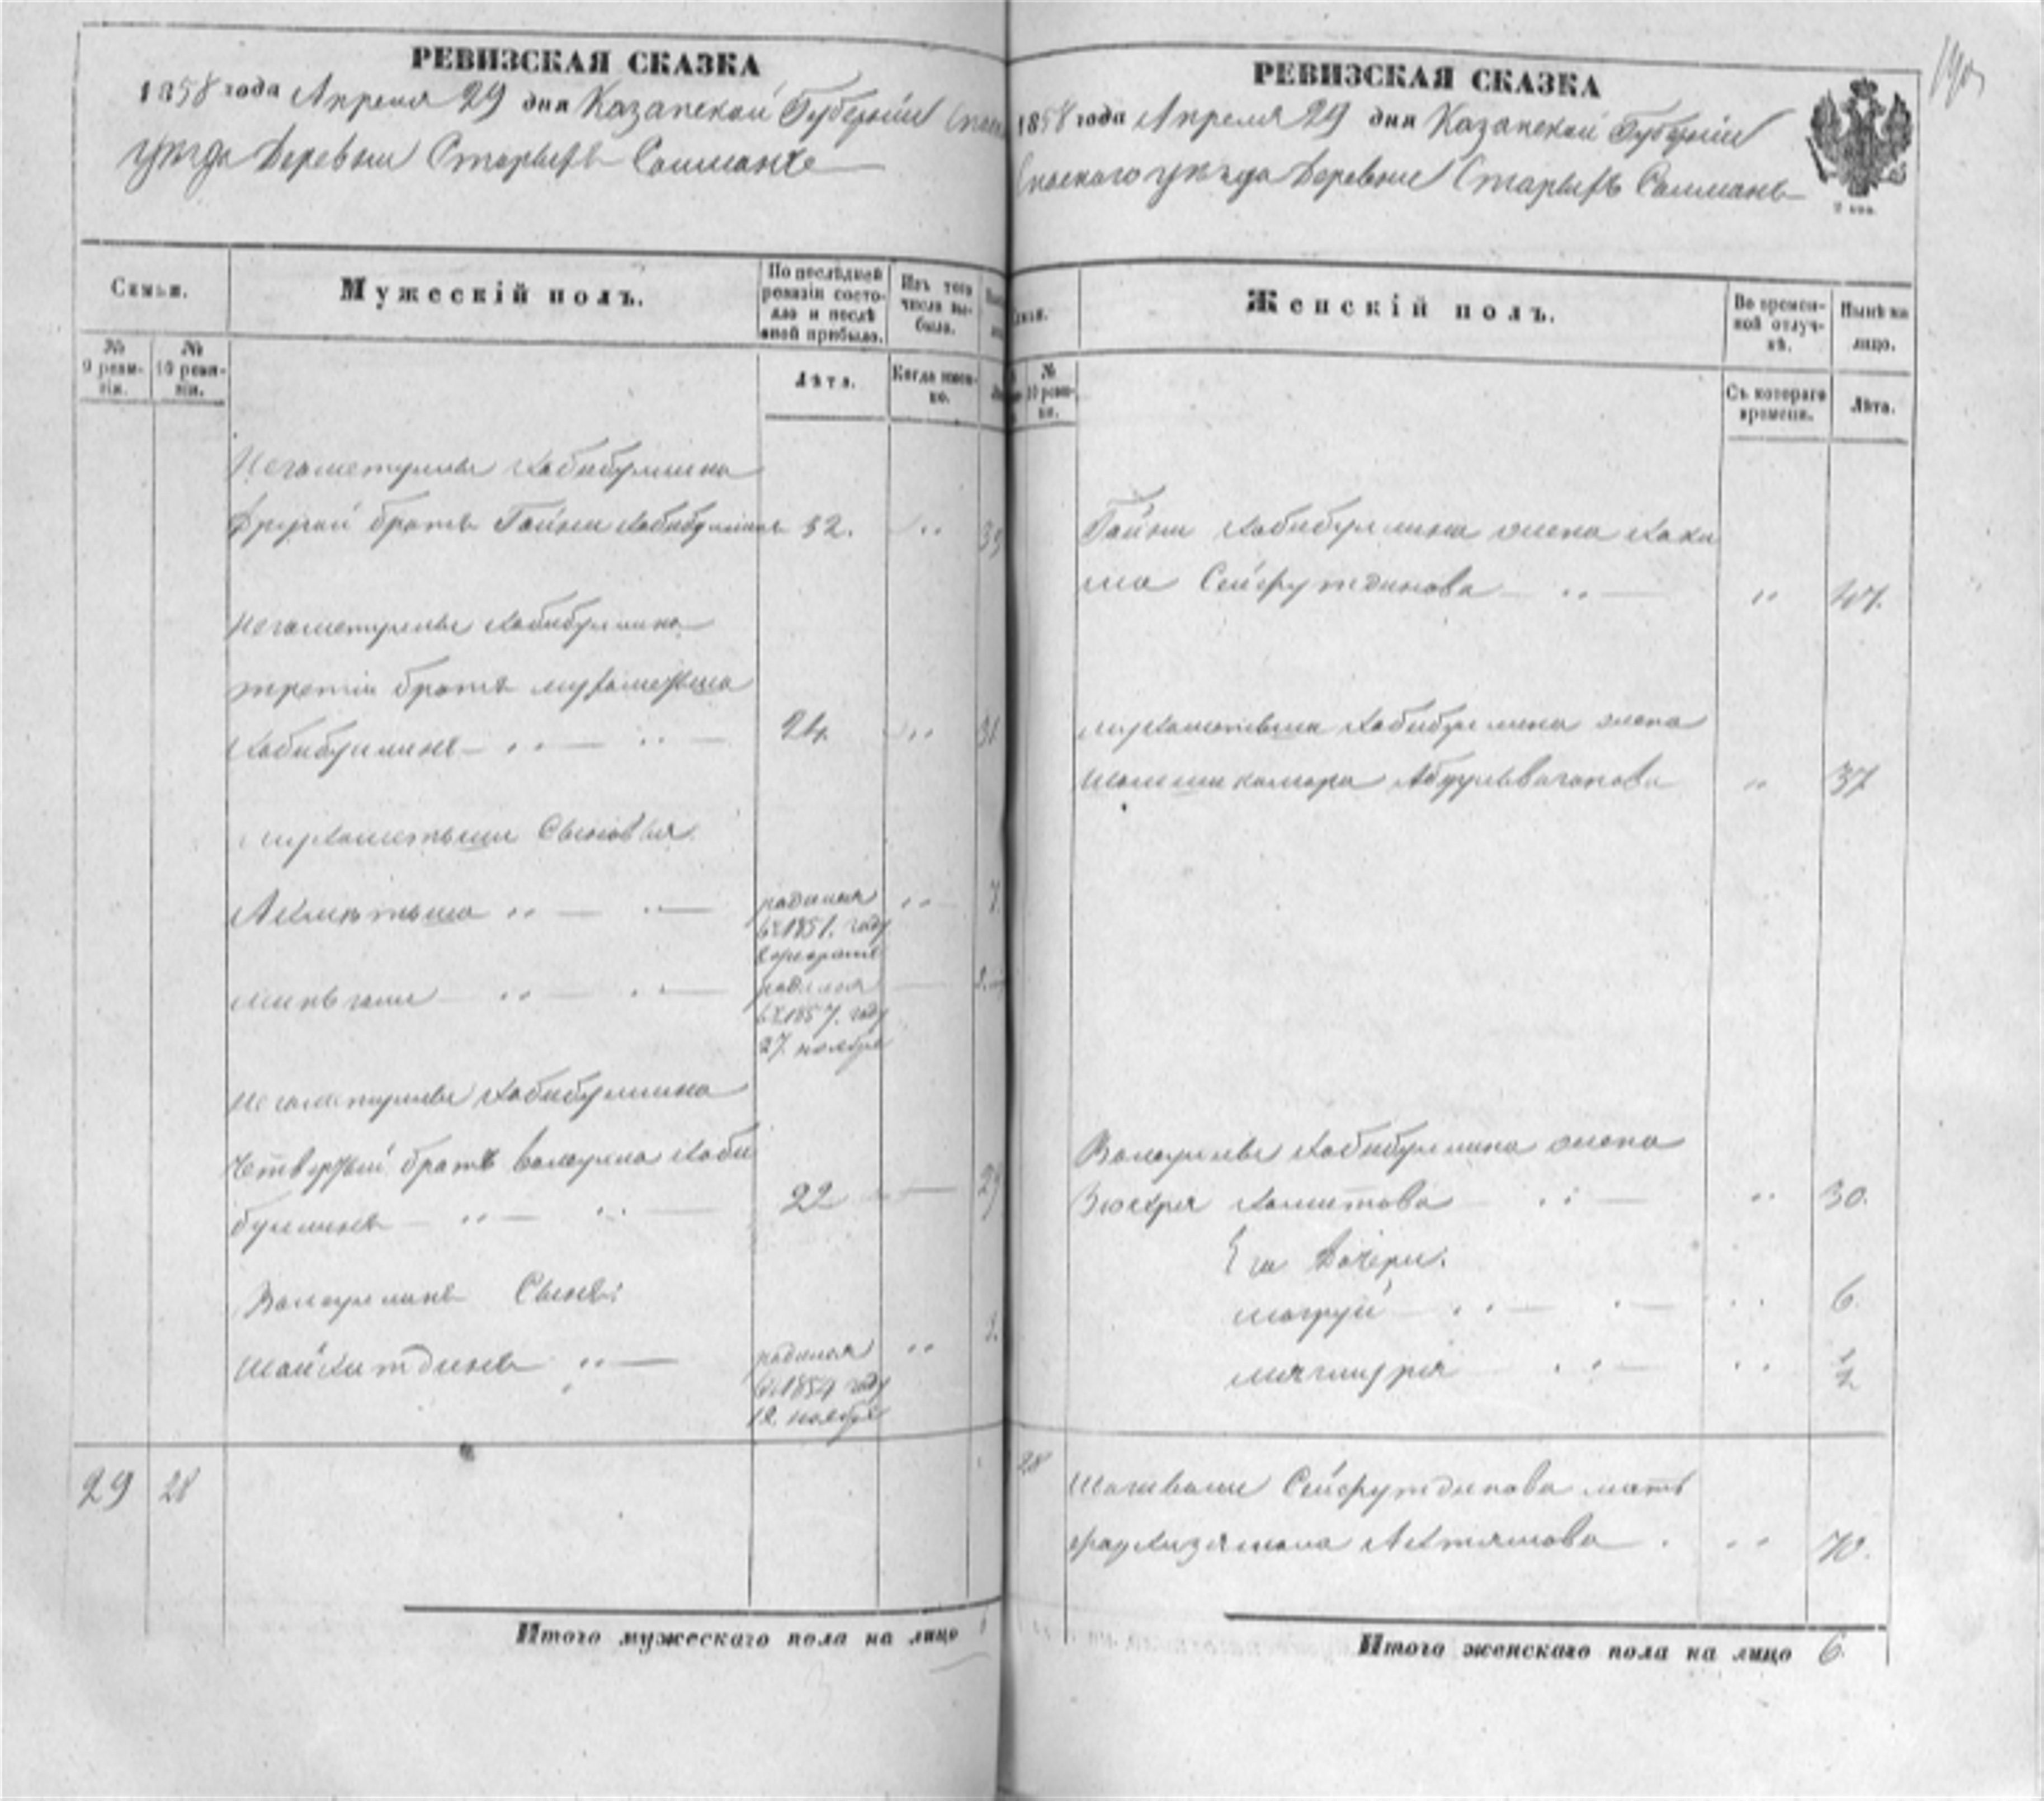 РЕВИЗСКАЯ СКАЗКА
1858 года Апреля 29 дня Казанской Губернiи
уѣзда Деревни Старыхъ Салманъ
Семьи.
Мужескiй полъ.
По послѣдней ревизiи состояло и послѣ оной прибыло.
Изъ того числа выбыло.
№ 9 ревизiи.
№ 10 ревизiи.
Лѣта.
Когда именно.
Негаметуллы Хабибуллина
Другой братъ Гайни Хабибуллинъ 32.
Негаметуллы Хабибуллина
третiй братъ Мухаметьша
Хабибуллинъ 24. 31
Мухаметьши Сыновья
Ахметьша родился 7
въ 1851. году
Миньгали родился
въ 1857. году
27 ноября
Негаметуллы Хабибуллина
Четвертый братъ Валиулла Хаби
буллинъ 22 29
Валиуллинъ Сынъ:
Шайхитдинъ родился
въ 1854 году
12 ноября
29 28
Итого мужескаго пола на лицо
РЕВИЗСКАЯ СКАЗКА
1858 года Апреля 29 дня Казанской Губернiи
Спаского уѣзда Деревни Старыхъ Салманъ
2 коп.
Женскiй полъ.
Во временной отлучкѣ.
Нынѣ на лицо.
№ 10 ревизiи.
Съ котораго времени.
Лѣта.
Гайни Хабибуллина жена Хаки
ма Сейфутдинова 47.
Мухаметьши Хабибуллина жена
Шамшикамара Абдульвагапова 37
Валиуллы Хабибуллина жена
Зюгря Хамитова 30.
Ея Дочери:
6.
1/2
28 Шагивали Сейфутдинова мать
Актяшова 70.
Итого женскаго пола на лицо 6.